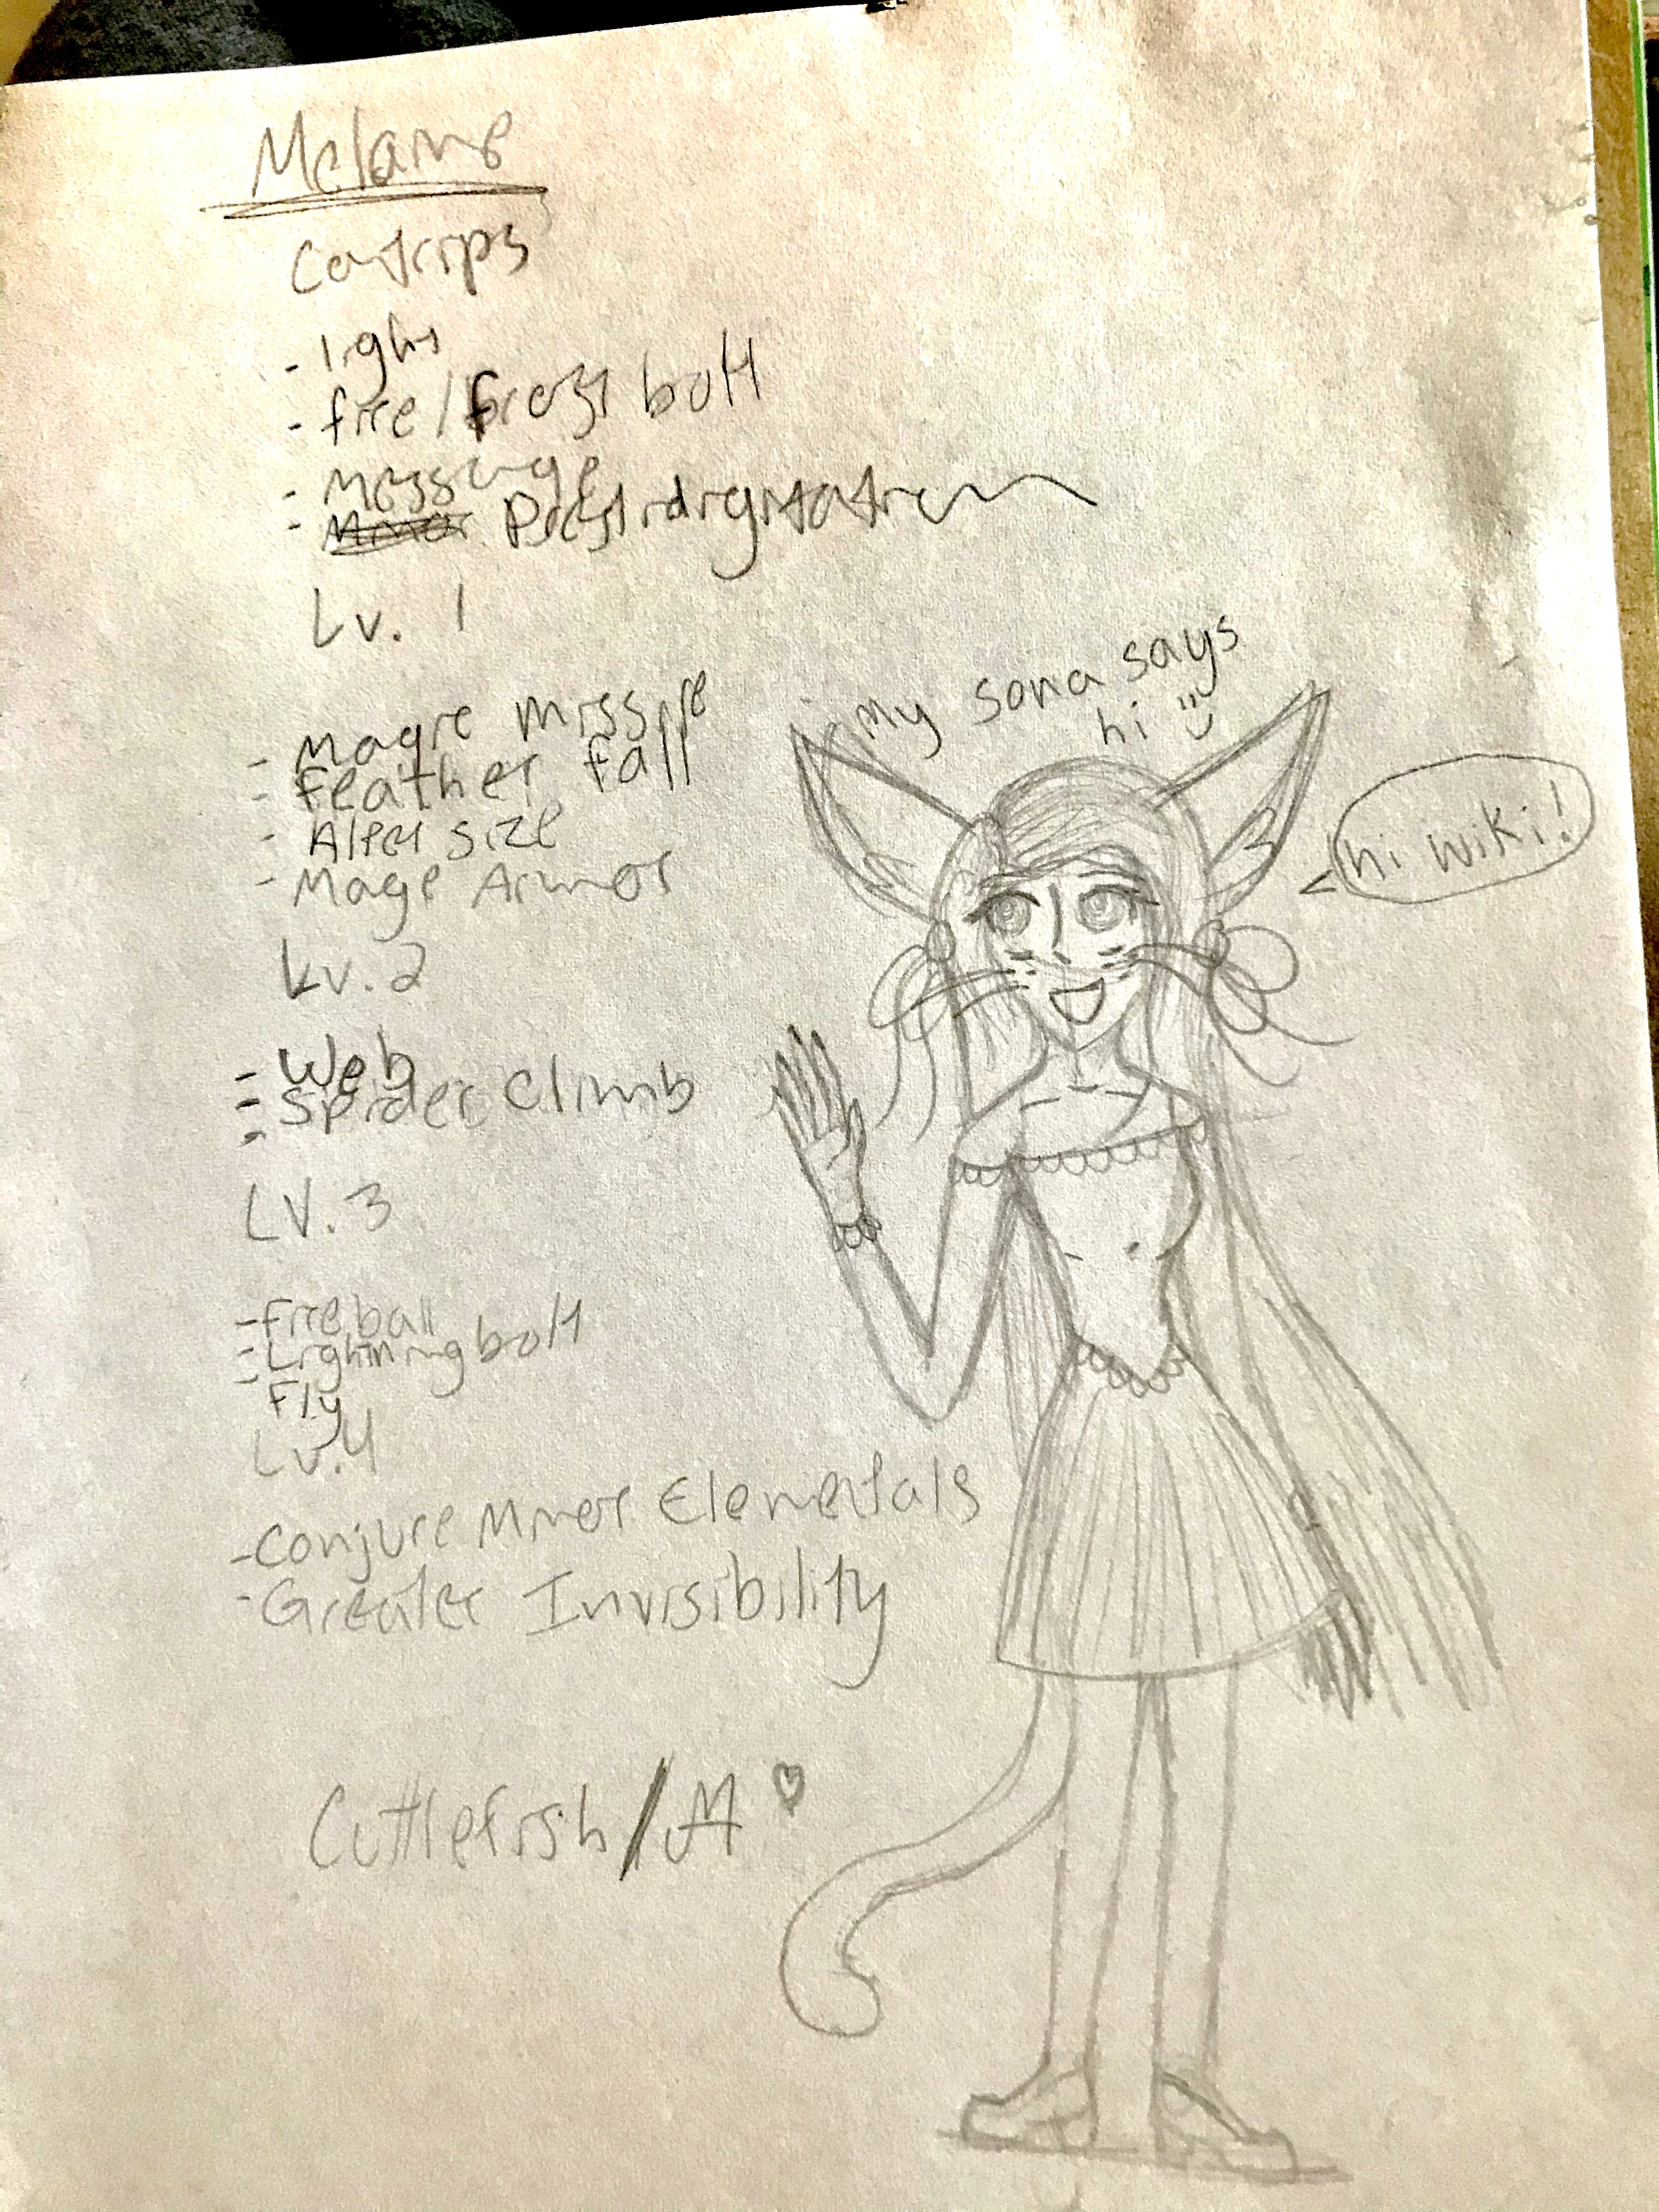 Melanie
Cantrips
- light
- fire/frost bolt
- Message
- Prestidigitation
Lv. 1
- Magic Missile
- Feather fall
- Alter size
- Mage Armor
Lv. 2
- Web
- Spider Climb
-
LV. 3
- Fire ball
- Lightning bolt
- Fly
Lv. 4
- Conjure Minor Elementals
- Greater Invisibility
My sona says
hi :)
hi wiki!
Cuttlefish/M ♡